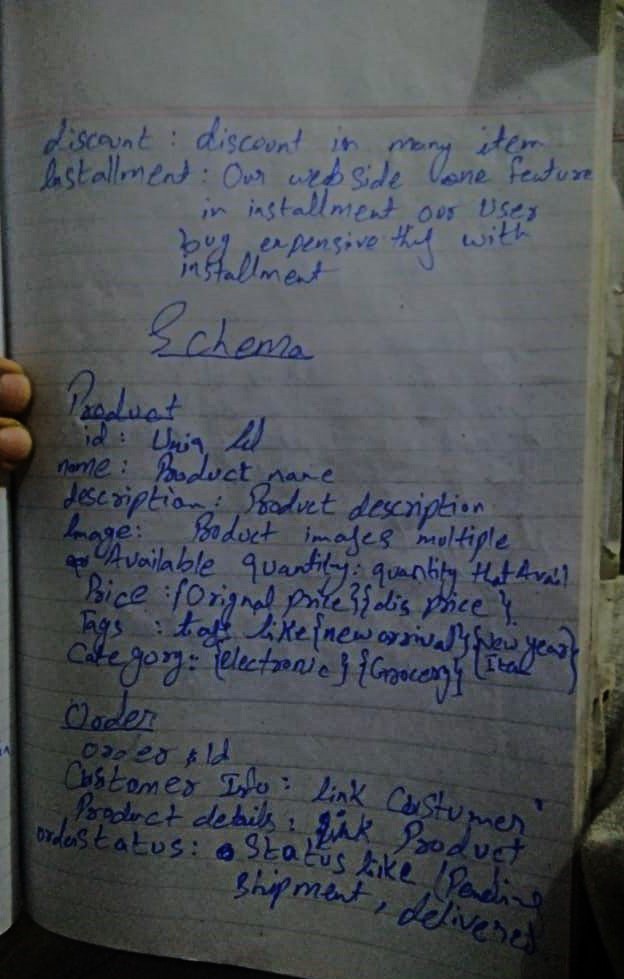 discount : discount in many item
Installment : Our webside one feature
in installment our User
buy expensive with
installment
Schema
Product
id : Uniq Id
name : Product name
description : Product description
Image : Product images multiple
Available quantity : quantity that Avail
Price : {Orignal price} {dis price}
Tags : tags like {new arrival} {New year
Item}
Category : {electronic} {Grocery}
Order
order Id
Customer Info : link Custumer
Product details : link Product
order status : Status like (Pending
Shipment, delivered